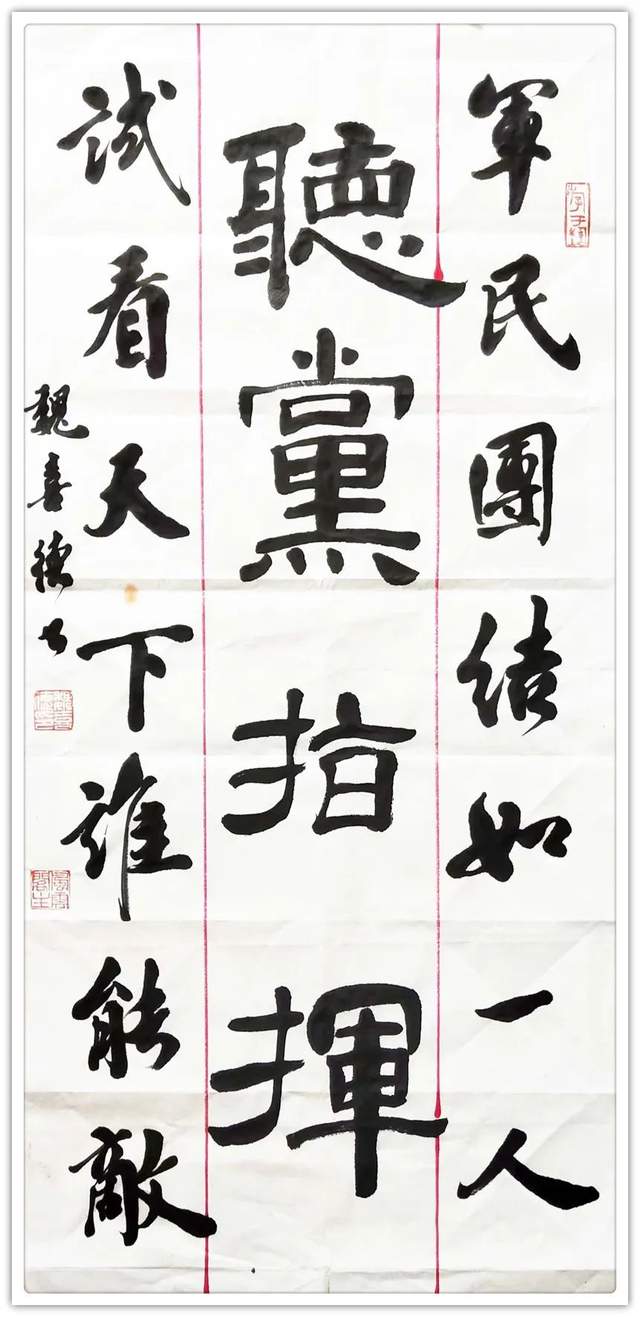 軍民團結如一人
聽黨指揮
試看天下誰能敵
魏喜德书